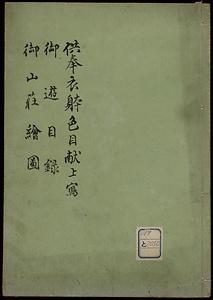 供奉衣躰色目献上寫
御遊目録
御山莊繪圖